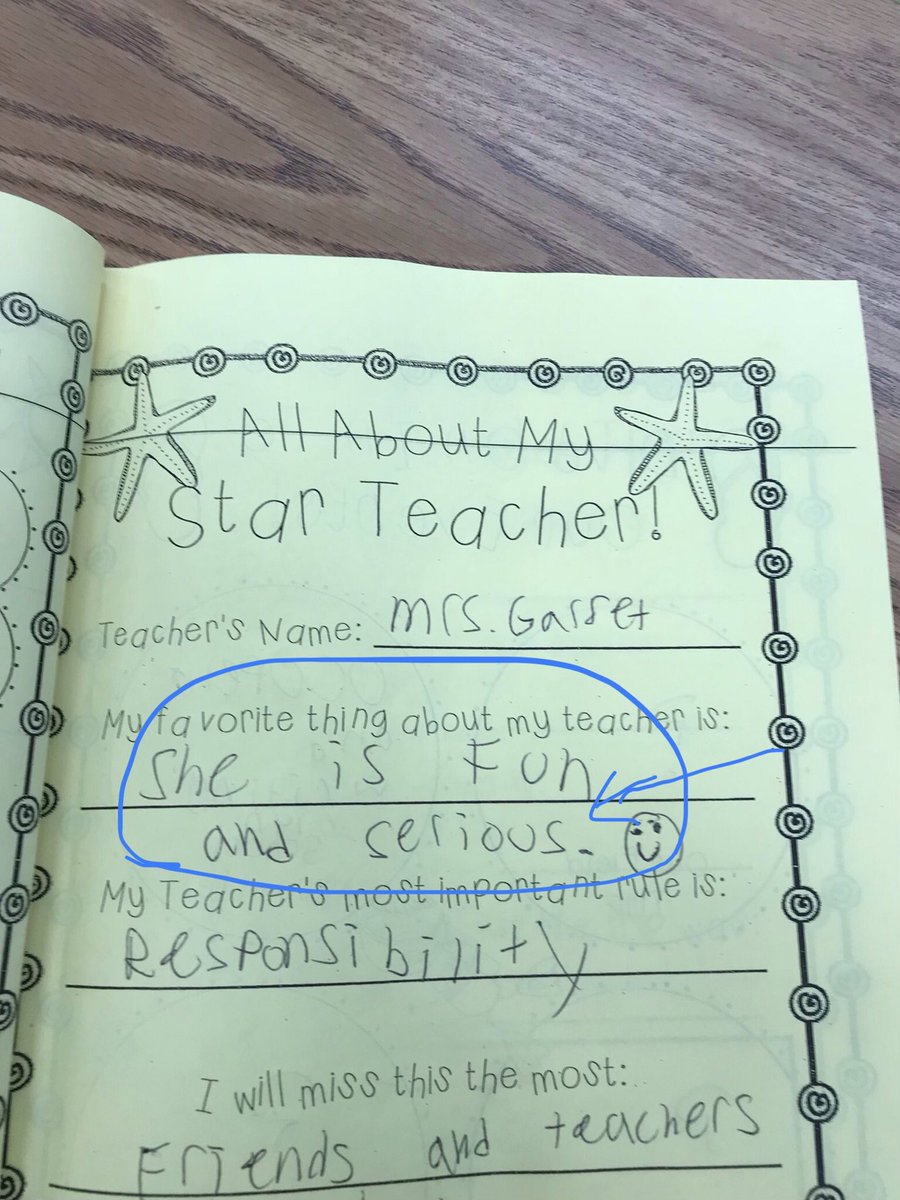 All About My
Star Teacher!
Teacher's Name: Mrs. Garret
My favorite thing about my teacher is:
She is Fun
and serious.
My Teacher's most important rule is:
Responsibility
I will miss this the most:
Friends and teachers